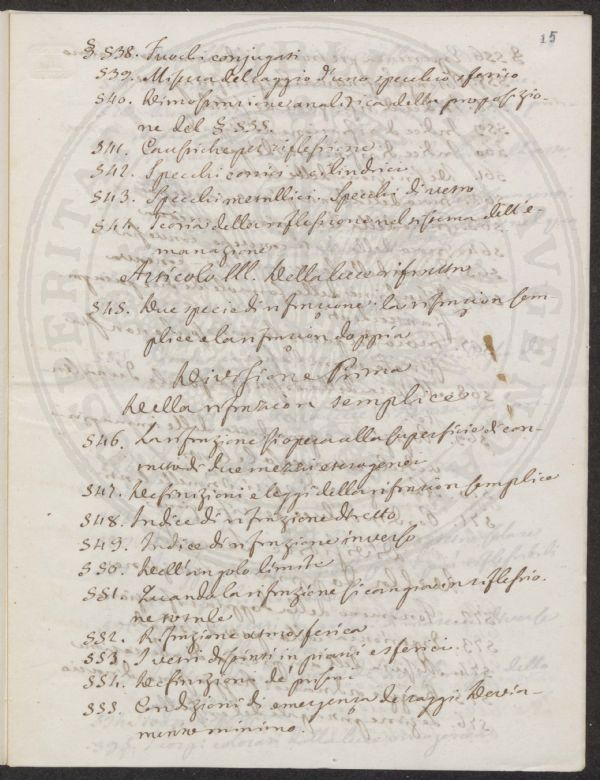 15
§ 538. Fuochi conjugati
539. Misura del raggio d'uno specchio sferico
540. Dimostrazione analitica della proposizio-
ne del § 535.
541. Caustiche per riflessione
542. Specchi conici e cilindrici
543. Specchi metallici. Specchi di vetro
544. Teoria della riflessione nel sistema dell'e-
manazione
Articolo III. Della luce rifratta
545. Due specie di rifrazione: la rifrazion sem-
plice e la rifrazion doppia
Divisione Prima
Della rifrazion semplice
546. La rifrazione si opera alla superficie di con-
tatto di due mezzi eterogenei
547. Definizioni e leggi della rifrazion semplice
548. Indice di rifrazione diretto
549. Indice di rifrazione inverso
550. Dell'angolo limite
551. Quando la rifrazione si cangia in riflessio-
ne totale
552. Rifrazione atmosferica
553. I vetri distinti in piani e sferici.
554. Definizione de' prismi
555. Condizioni di emergenza de' raggi. Devia-
mento minimo.